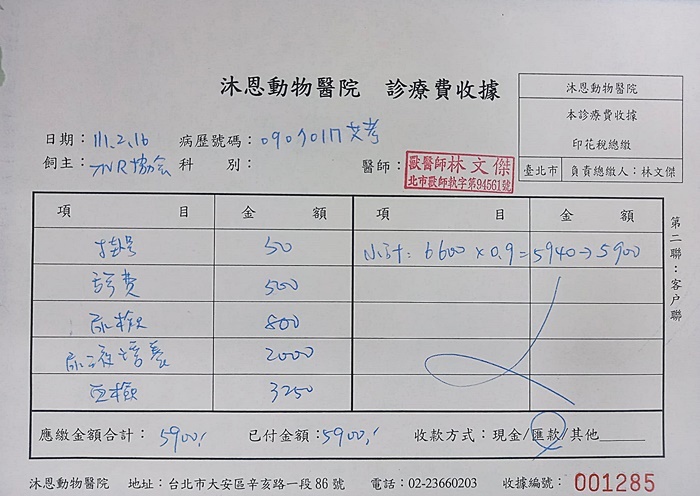 沐恩動物醫院 診療費收據
沐恩動物醫院
本診療費收據
印花稅總繳
臺北市 負責總繳人:林文傑
日期: 111.2.16 病歷號碼:
飼主: TNR協會 科 別: 醫師: 獸醫師林文傑
北市獸師執字第94561號
項 目 金 額 項 目 金 額
掛號 50 小計: 6600 x 0.9 = 5940 → 5900
診費 500
尿檢 800
尿液培養 2000
血檢 3250
應繳金額合計: 5900.- 已付金額: 5900.- 收款方式: 現金/匯款/其他
第二聯:客户聯
沐恩動物醫院 地址:台北市大安區辛亥路一段86號 電話:02-23660203 收據編號: 001285